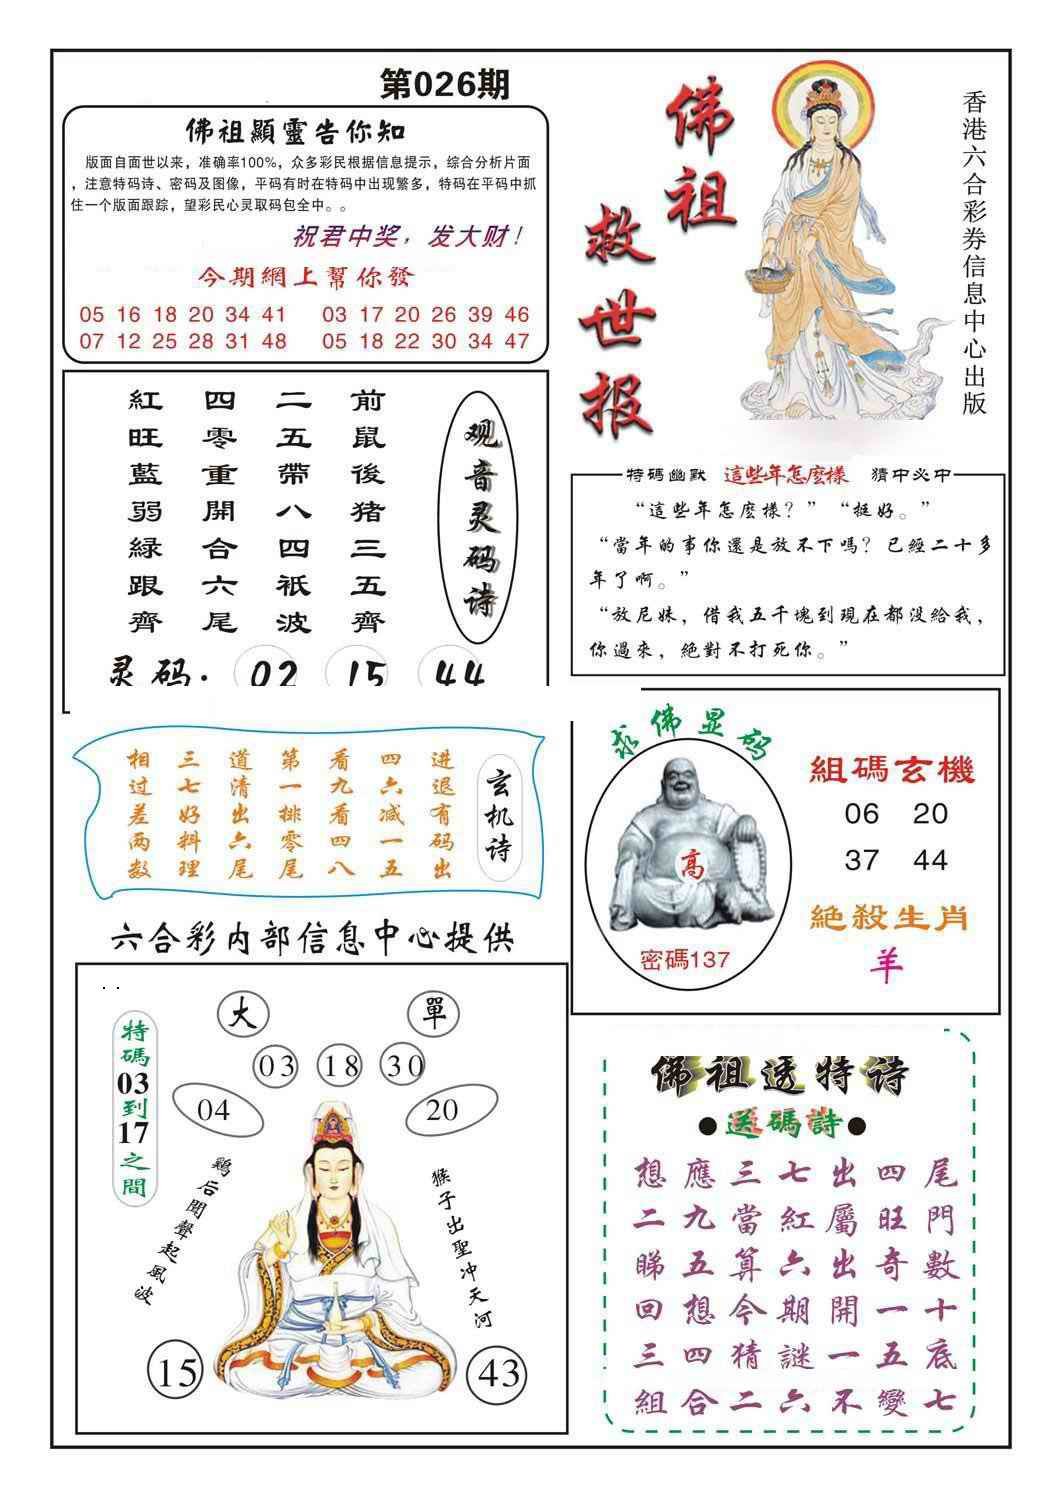 第026期
佛祖顯靈告你知
版面自面世以来，准确率100%，众多彩民根据信息提示，综合分析片面
，注意特码诗、密码及图像，平码有时在特码中出现繁多，特码在平码中抓
住一个版面跟踪，望彩民心灵取码包全中。。
祝君中奖，发大财！
今期網上幫你發
05 16 18 20 34 41 03 17 20 26 39 46
07 12 25 28 31 48 05 18 22 30 34 47
佛祖
救世报
香港六合彩券信息中心出版
观音灵码诗
前鼠後猪三五齊
二五帶八四衹波
四零重開合六尾
紅旺藍弱緑跟齊
灵码：02 15 44
特碼幽默 這些年怎麽樣 猜中必中
“這些年怎麽樣？” “挺好。”
“當年的事你還是放不下嗎？已經二十多
年了啊。”
“放尼妹，借我五千塊到現在都没給我，
你過來，絶對不打死你。”
玄机诗
进退有码出
四六减一五
看九看四八
第一排零尾
道清出六尾
三七好料理
相过差两数
求佛显码
高
密碼137
組碼玄機
06 20
37 44
絕殺生肖
羊
六合彩内部信息中心提供
大
單
03
18
30
04
20
特碼03到17之間
鷄后聞聲起風波
猴子出聖冲天河
15
43
佛祖透特诗
●送碼詩●
想應三七出四尾
二九當紅屬旺門
睇五算六出奇數
回想今期開一十
三四猜謎一五底
組合二六不變七